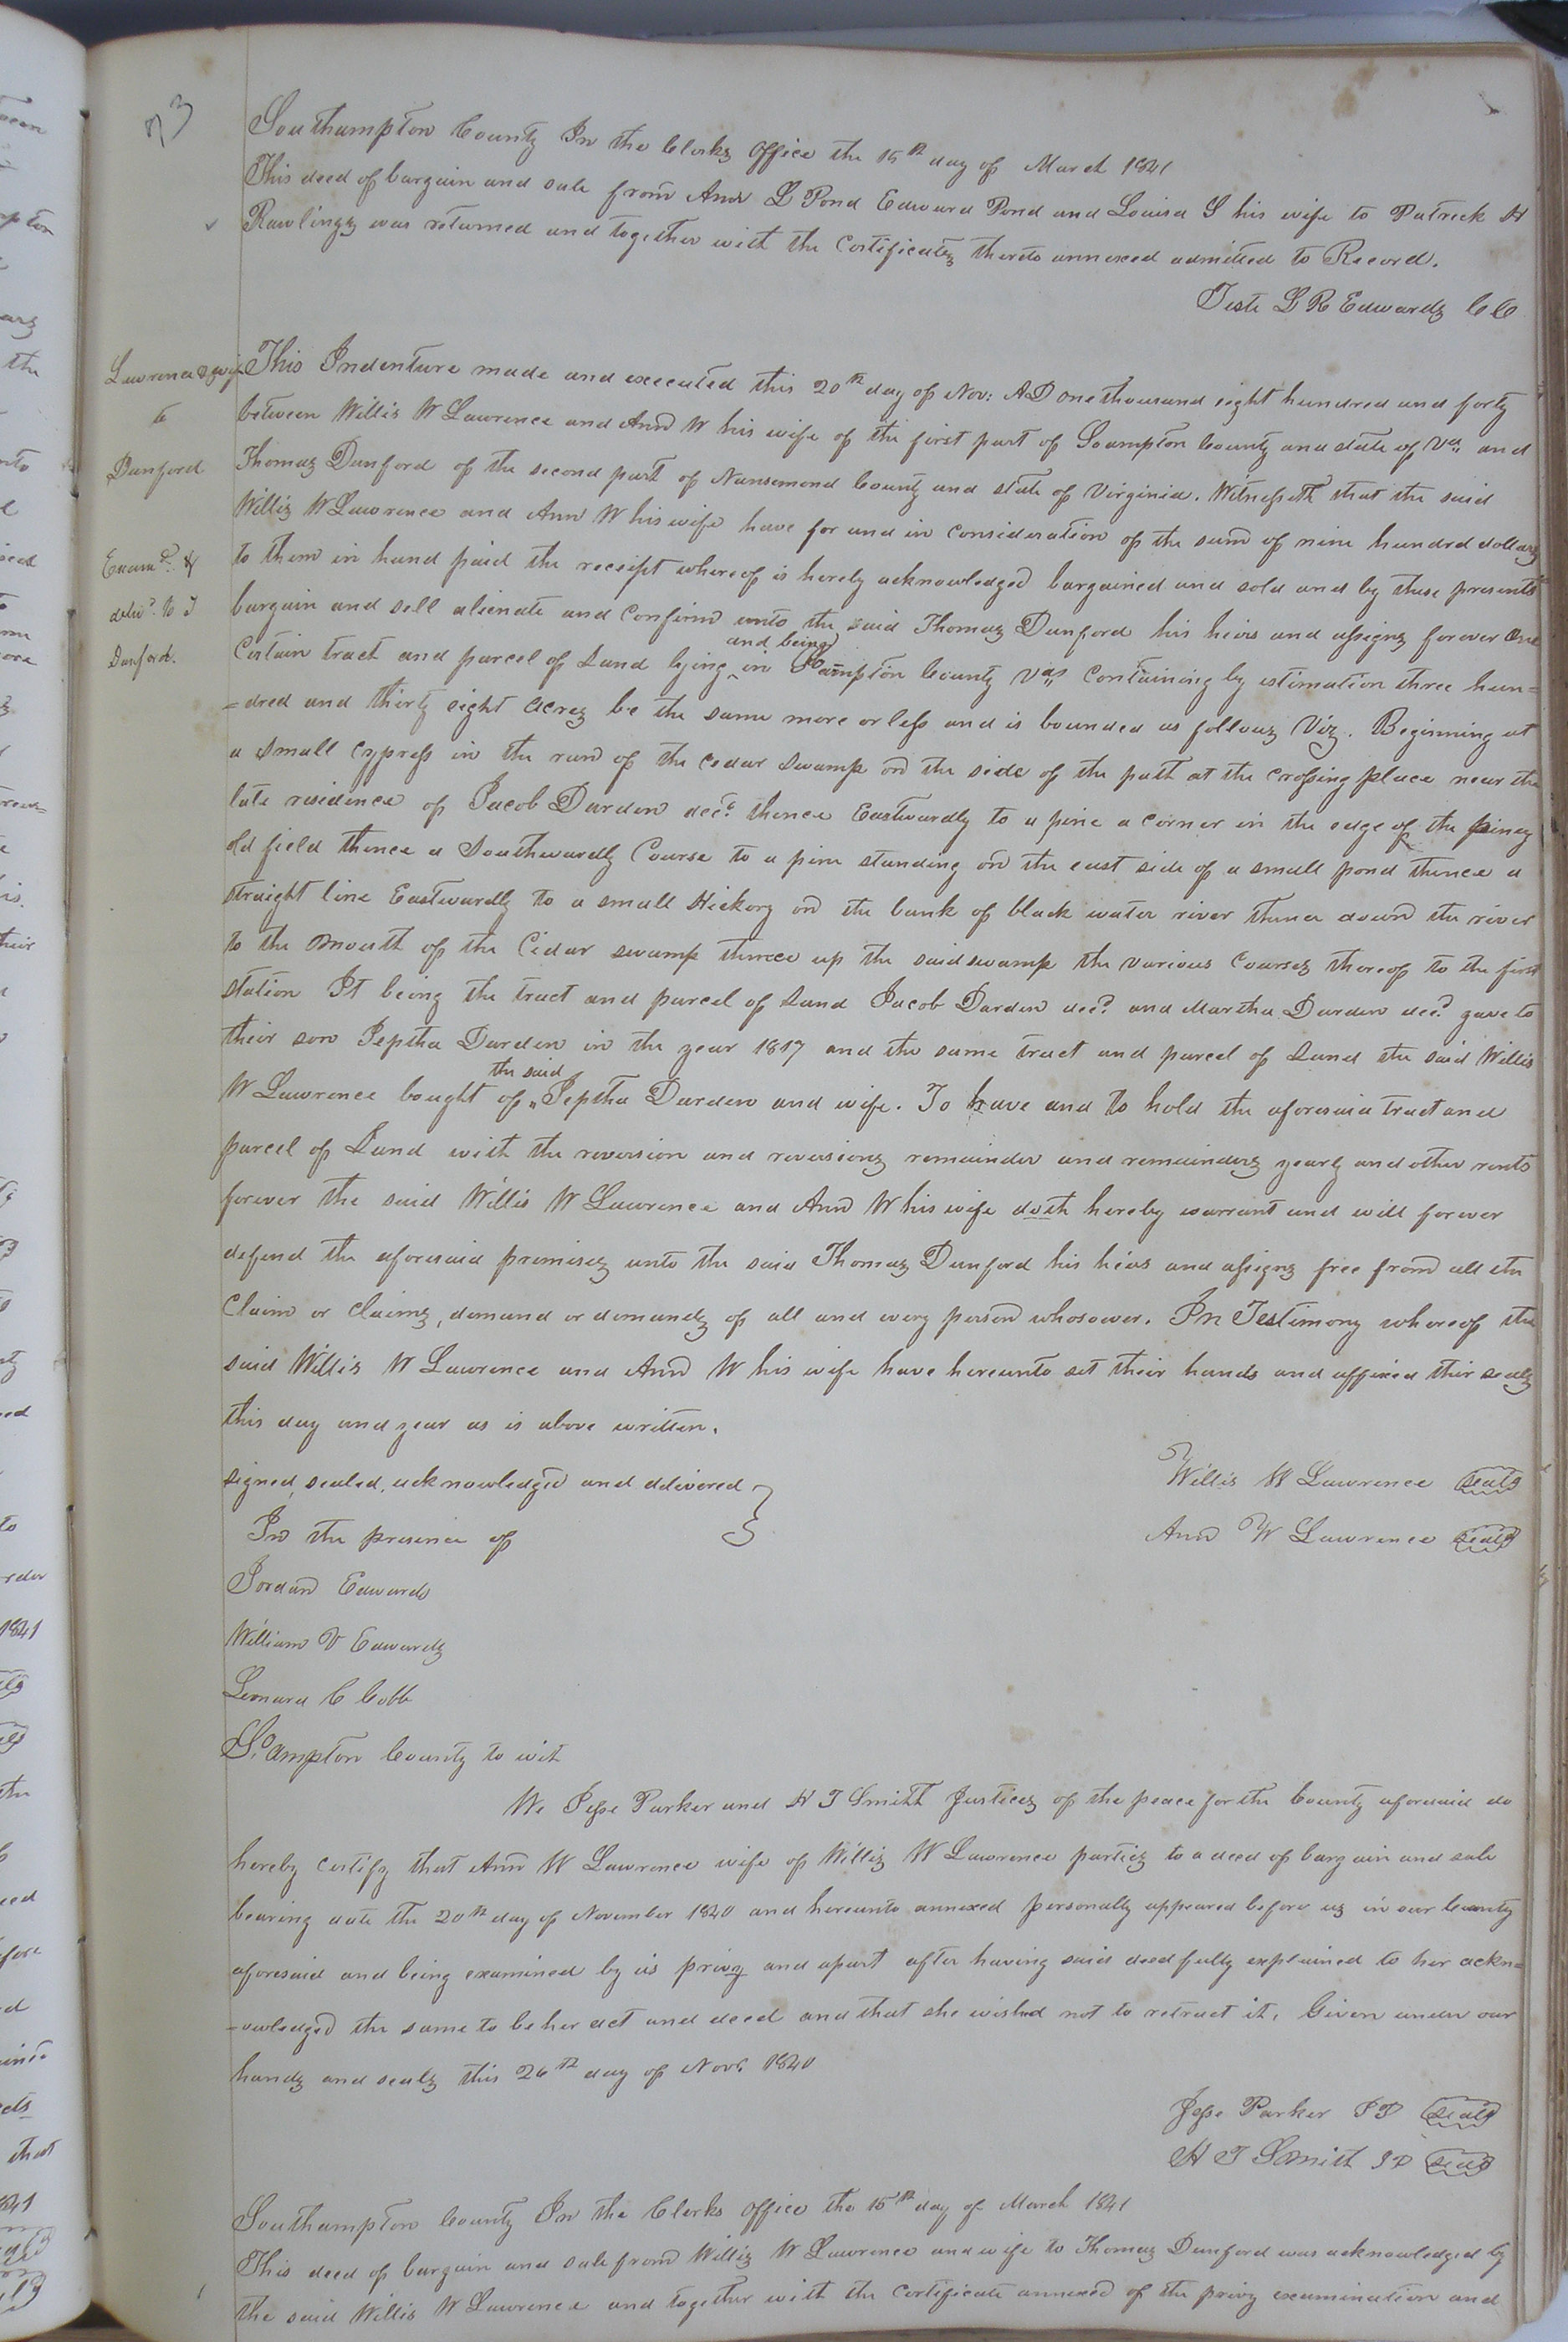 73
Southampton County In the Clerks office the 15th day of March 1841
This deed of bargain and sale from Ann L Pond Edward Pond and Louisa S his wife to Patrick H
Rawlings was returned and together with the Certificates thereto annexed admitted to Record.
Teste L R Edwards CC
Lawrence & wife
to
Dunford
Examd. &
delivd. to T
Dunford.
This Indenture made and executed this 20th day of Nov: AD one thousand eight hundred and forty
between Willis W Lawrence and Ann W his wife of the first part of Soampton County and state of Va and
Thomas Dunford of the second part of Nansemond County and state of Virginia. Witnesseth that the said
Willis W Lawrence and Ann W his wife have for and in consideration of the sum of nine hundrd dollars
to them in hand paid the receipt whereof is hereby acknowledged bargained and sold and by these presents
bargain and sell alienate and Confirm unto the said Thomas Dunford his heirs and assigns forever One
and being
Certain tract and parcel of Land lying ^ in Soampton County Vas Containing by estimation three hun=
=dred and thirty eight Acres be the same more or less and is bounded as follows Viz. Beginning at
a small Cypress in the run of the cedar swamp on the side of the path at the Crossing place near the
late residence of Jacob Darden decd. thence Eastwardly to a pine a corner in the edge of the piney
old field thence a Southwardly Course to a pine standing on the east side of a small pond thence a
straight line Eastwardly to a small Hickory on the bank of black water river thence down the river
to the mouth of the Cedar swamp thence up the said swamp the various Courses thereof to the first
station It being the tract and parcel of Land Jacob Darden decd. and Martha Darden decd. gave to
their son Jeptha Darden in the year 1817 and the same tract and parcel of Land the said Willis
the said
W Lawrence bought of " Jeptha Darden and wife. To have and to hold the aforesaid tract and
parcel of Land with the reversion and reversions remainder and remainders yearly and other rents
forever the said Willis W Lawrence and Ann W his wife doth hereby warrant and will forever
defend the aforesaid premises unto the said Thomas Dunford his heirs and assigns free from all the
Claim or claims, demand or demands of all and every person whosoever. In Testimony whereof the
said Willis W Lawrence and Ann W his wife have hereunto set their hands and affixed their seals
this day and year as is above written.
signed, sealed, acknowledged and delivered }
In the presence of
Willis W Lawrence seal
Ann W Lawrence seal
Jordan Edwards
William V Edwards
Leonard C Cobb
So.ampton County to wit
We Jesse Parker and H T Smith Justices of the peace for the County aforesaid do
hereby certify that Ann W Lawrence wife of Willis W Lawrence parties to a deed of bargain and sale
bearing date the 20th day of November 1840 and hereunto annexed personally appeared before us in our County
aforesaid and being examined by us privy and apart after having said deed fully explained to her ackn=
=owledged the same to be her act and deed and that she wished not to retract it. Given under our
hands and seals this 26th day of Novr. 1840
Jesse Parker JP seal
H T Smith JP seal
Southampton County In the Clerks office the 15th day of March 1841
This deed of bargain and sale from Willis W Lawrence and wife to Thomas Dunford was acknowledged by
the said Willis W Lawrence and together with the Certificate annexed of the privy examination and